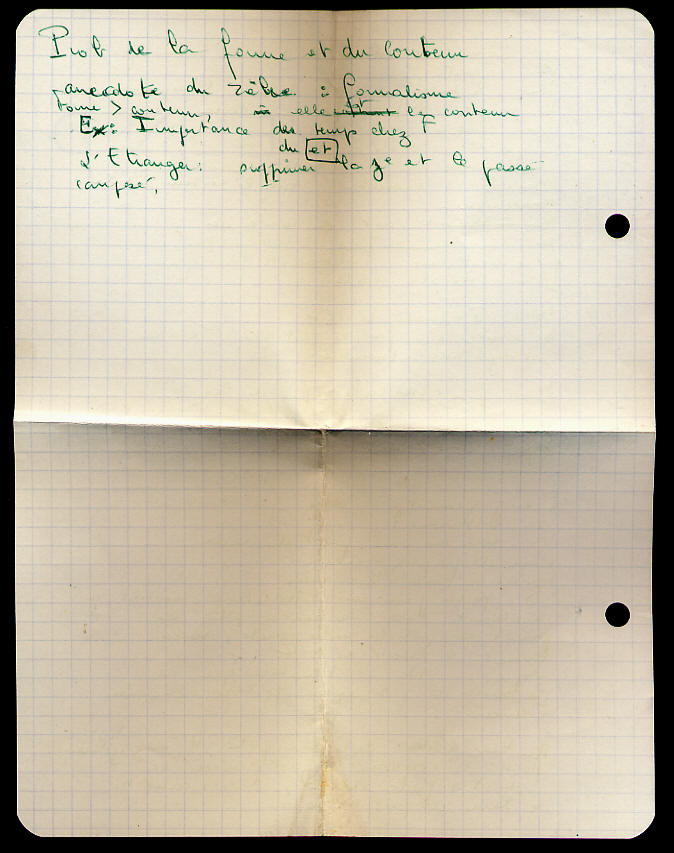 Prob de la forme et du contenu
anecdote du zèbre : formalisme
forme > contenu, elle est le contenu
Ex: Importance des temps chez F
du et
L'Etranger: supprimer la 3e et le passé
composé,